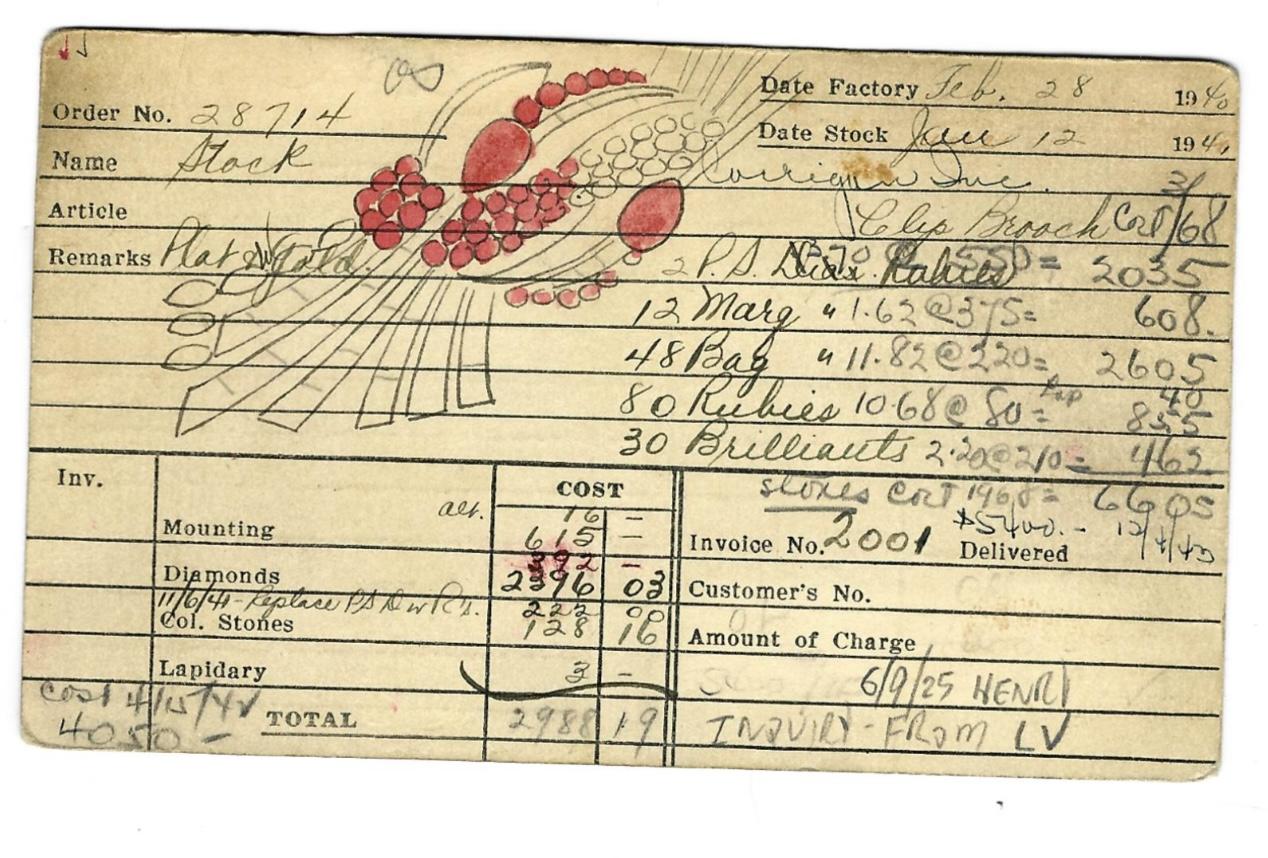 Date Factory Feb. 28 1940
Order No. 28714
Date Stock Jun 12 1940
Name Stock
Corrigan Inc.
Article
Clip Brooch Cost 3/68
Remarks Plat & Gold.
2 P.S. Rubies 3.70 @ 550 = 2035
12 Marq " 1.62 @ 375 = 608.
48 Bag " 11.82 @ 220 = 2605
40
80 Rubies 10.68 @ 80 = 855
30 Brilliants 2.20 @ 210 = 462
stones Cost 1968 = 6605
Inv.
COST
alt. 16 —
Mounting 615 —
392 —
Diamonds 2396 03
11/6/41 - Replace P.S. D w R's. 222 00
Col. Stones 128 16
Lapidary 3 —
TOTAL 2988 19
Cost 4/15/42
4050 —
Invoice No. 2001
$5400.- 12/4/43
Delivered
Customer's No.
Amount of Charge
6/9/25 HENRI
INQUIRY - FROM LV